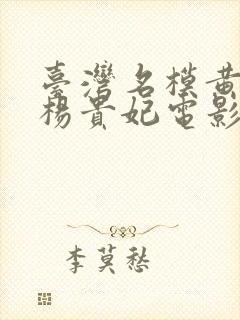 臺灣名模黃
楊貴妃電影
李莫愁